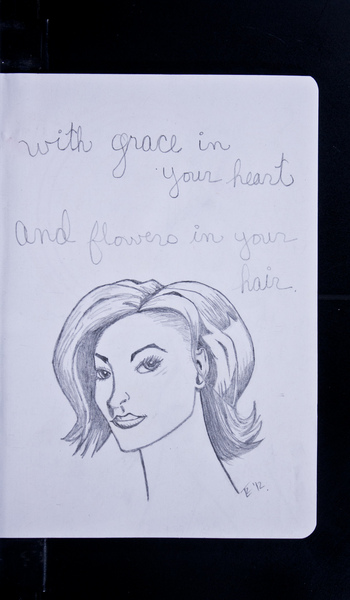 with grace in
your heart
and flowers in your
hair.
'12